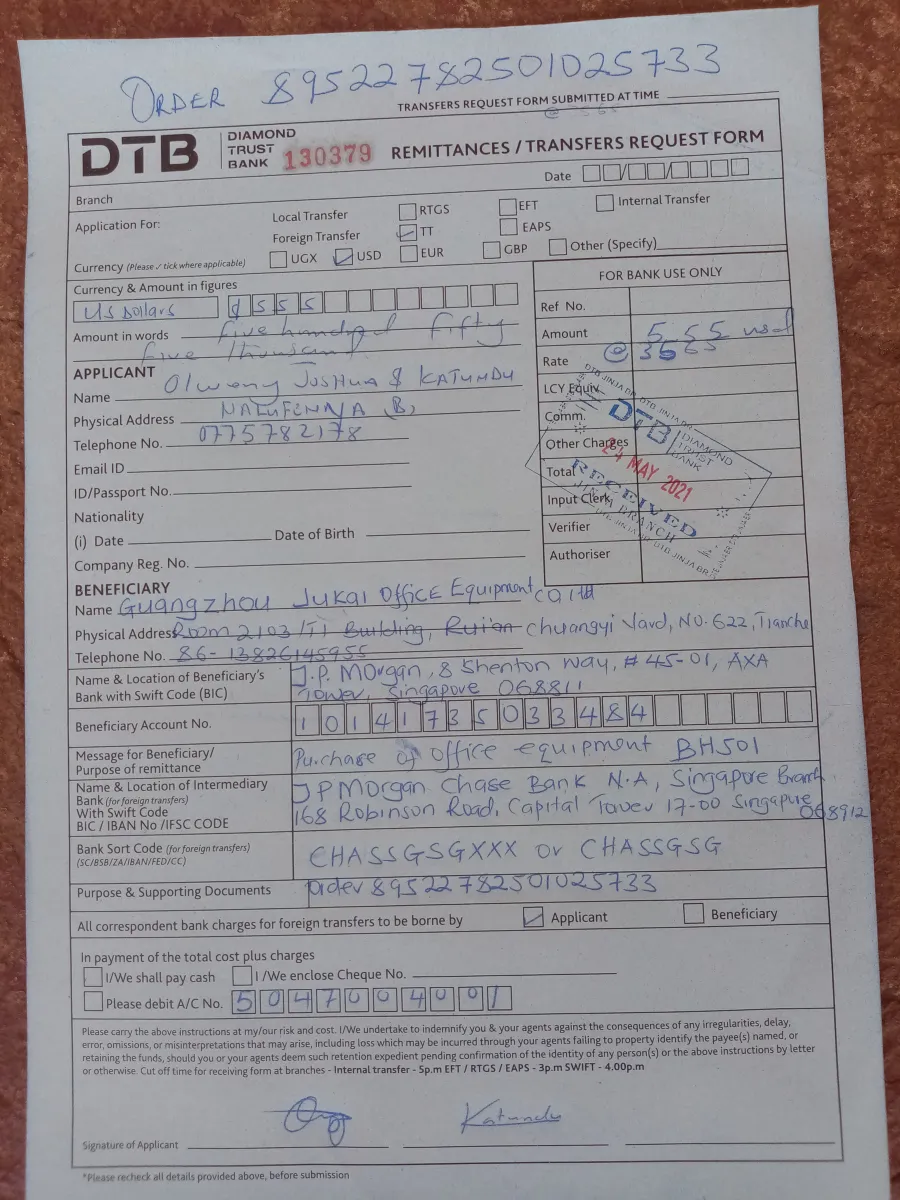 ORDER 89522782501025733
TRANSFERS REQUEST FORM SUBMITTED AT TIME
DTB DIAMOND TRUST BANK 130379 REMITTANCES / TRANSFERS REQUEST FORM
Date
Branch
Application For: Local Transfer RTGS EFT Internal Transfer
Foreign Transfer TT EAPS
Currency (Please ✓ tick where applicable) UGX USD EUR GBP Other (Specify)
Currency & Amount in figures
US Dollars $555
Amount in words five hundred fifty
five
FOR BANK USE ONLY
Ref No.
Amount 555 usd
Rate @
LCY Equiv.
Comm.
Other Charges
Total
Input Clerk
Verifier
Authoriser
DTB DIAMOND TRUST BANK
24 MAY 2021
RECEIVED
JINJA BRANCH
APPLICANT
Name Olweny JOSHUA & KATUNDU
Physical Address NALUFENYA B,
Telephone No. 0775782178
Email ID
ID/Passport No.
Nationality
(i) Date Date of Birth
Company Reg. No.
BENEFICIARY
Name Guangzhou Jukai Office Equipment CO ltd
Physical Address Room 2103/T1 Building, Ruian Chuangyi Yard, NO.622, Tianhe
Telephone No. 86-13826145955
Name & Location of Beneficiary's
Bank with Swift Code (BIC)
J.P. Morgan, 8 Shenton Way, #45-01, AXA
Tower, Singapore 068811
Beneficiary Account No. 10141735033484
Message for Beneficiary/
Purpose of remittance
Purchase of office equipment BH501
Name & Location of Intermediary
Bank (for foreign transfers)
With Swift Code
BIC / IBAN No /IFSC CODE
JPMorgan Chase Bank N.A, Singapore Branch
168 Robinson Road, Capital Tower 17-00 Singapure 068912
Bank Sort Code (for foreign transfers)
(SC/BSB/ZA/IBAN/FED/CC)
CHASSGSGXXX or CHASSGSG
Purpose & Supporting Documents order 89522782501025733
All correspondent bank charges for foreign transfers to be borne by Applicant Beneficiary
In payment of the total cost plus charges
I/We shall pay cash I/We enclose Cheque No.
Please debit A/C No. 5047004001
Please carry the above instructions at my/our risk and cost. I/We undertake to indemnify you & your agents against the consequences of any irregularities, delay,
error, omissions, or misinterpretations that may arise, including loss which may be incurred through your agents failing to property identify the payee(s) named, or
retaining the funds, should you or your agents deem such retention expedient pending confirmation of the identity of any person(s) or the above instructions by letter
or otherwise. Cut off time for receiving form at branches - Internal transfer - 5p.m EFT / RTGS / EAPS - 3p.m SWIFT - 4.00p.m
Katundu
Signature of Applicant
*Please recheck all details provided above, before submission